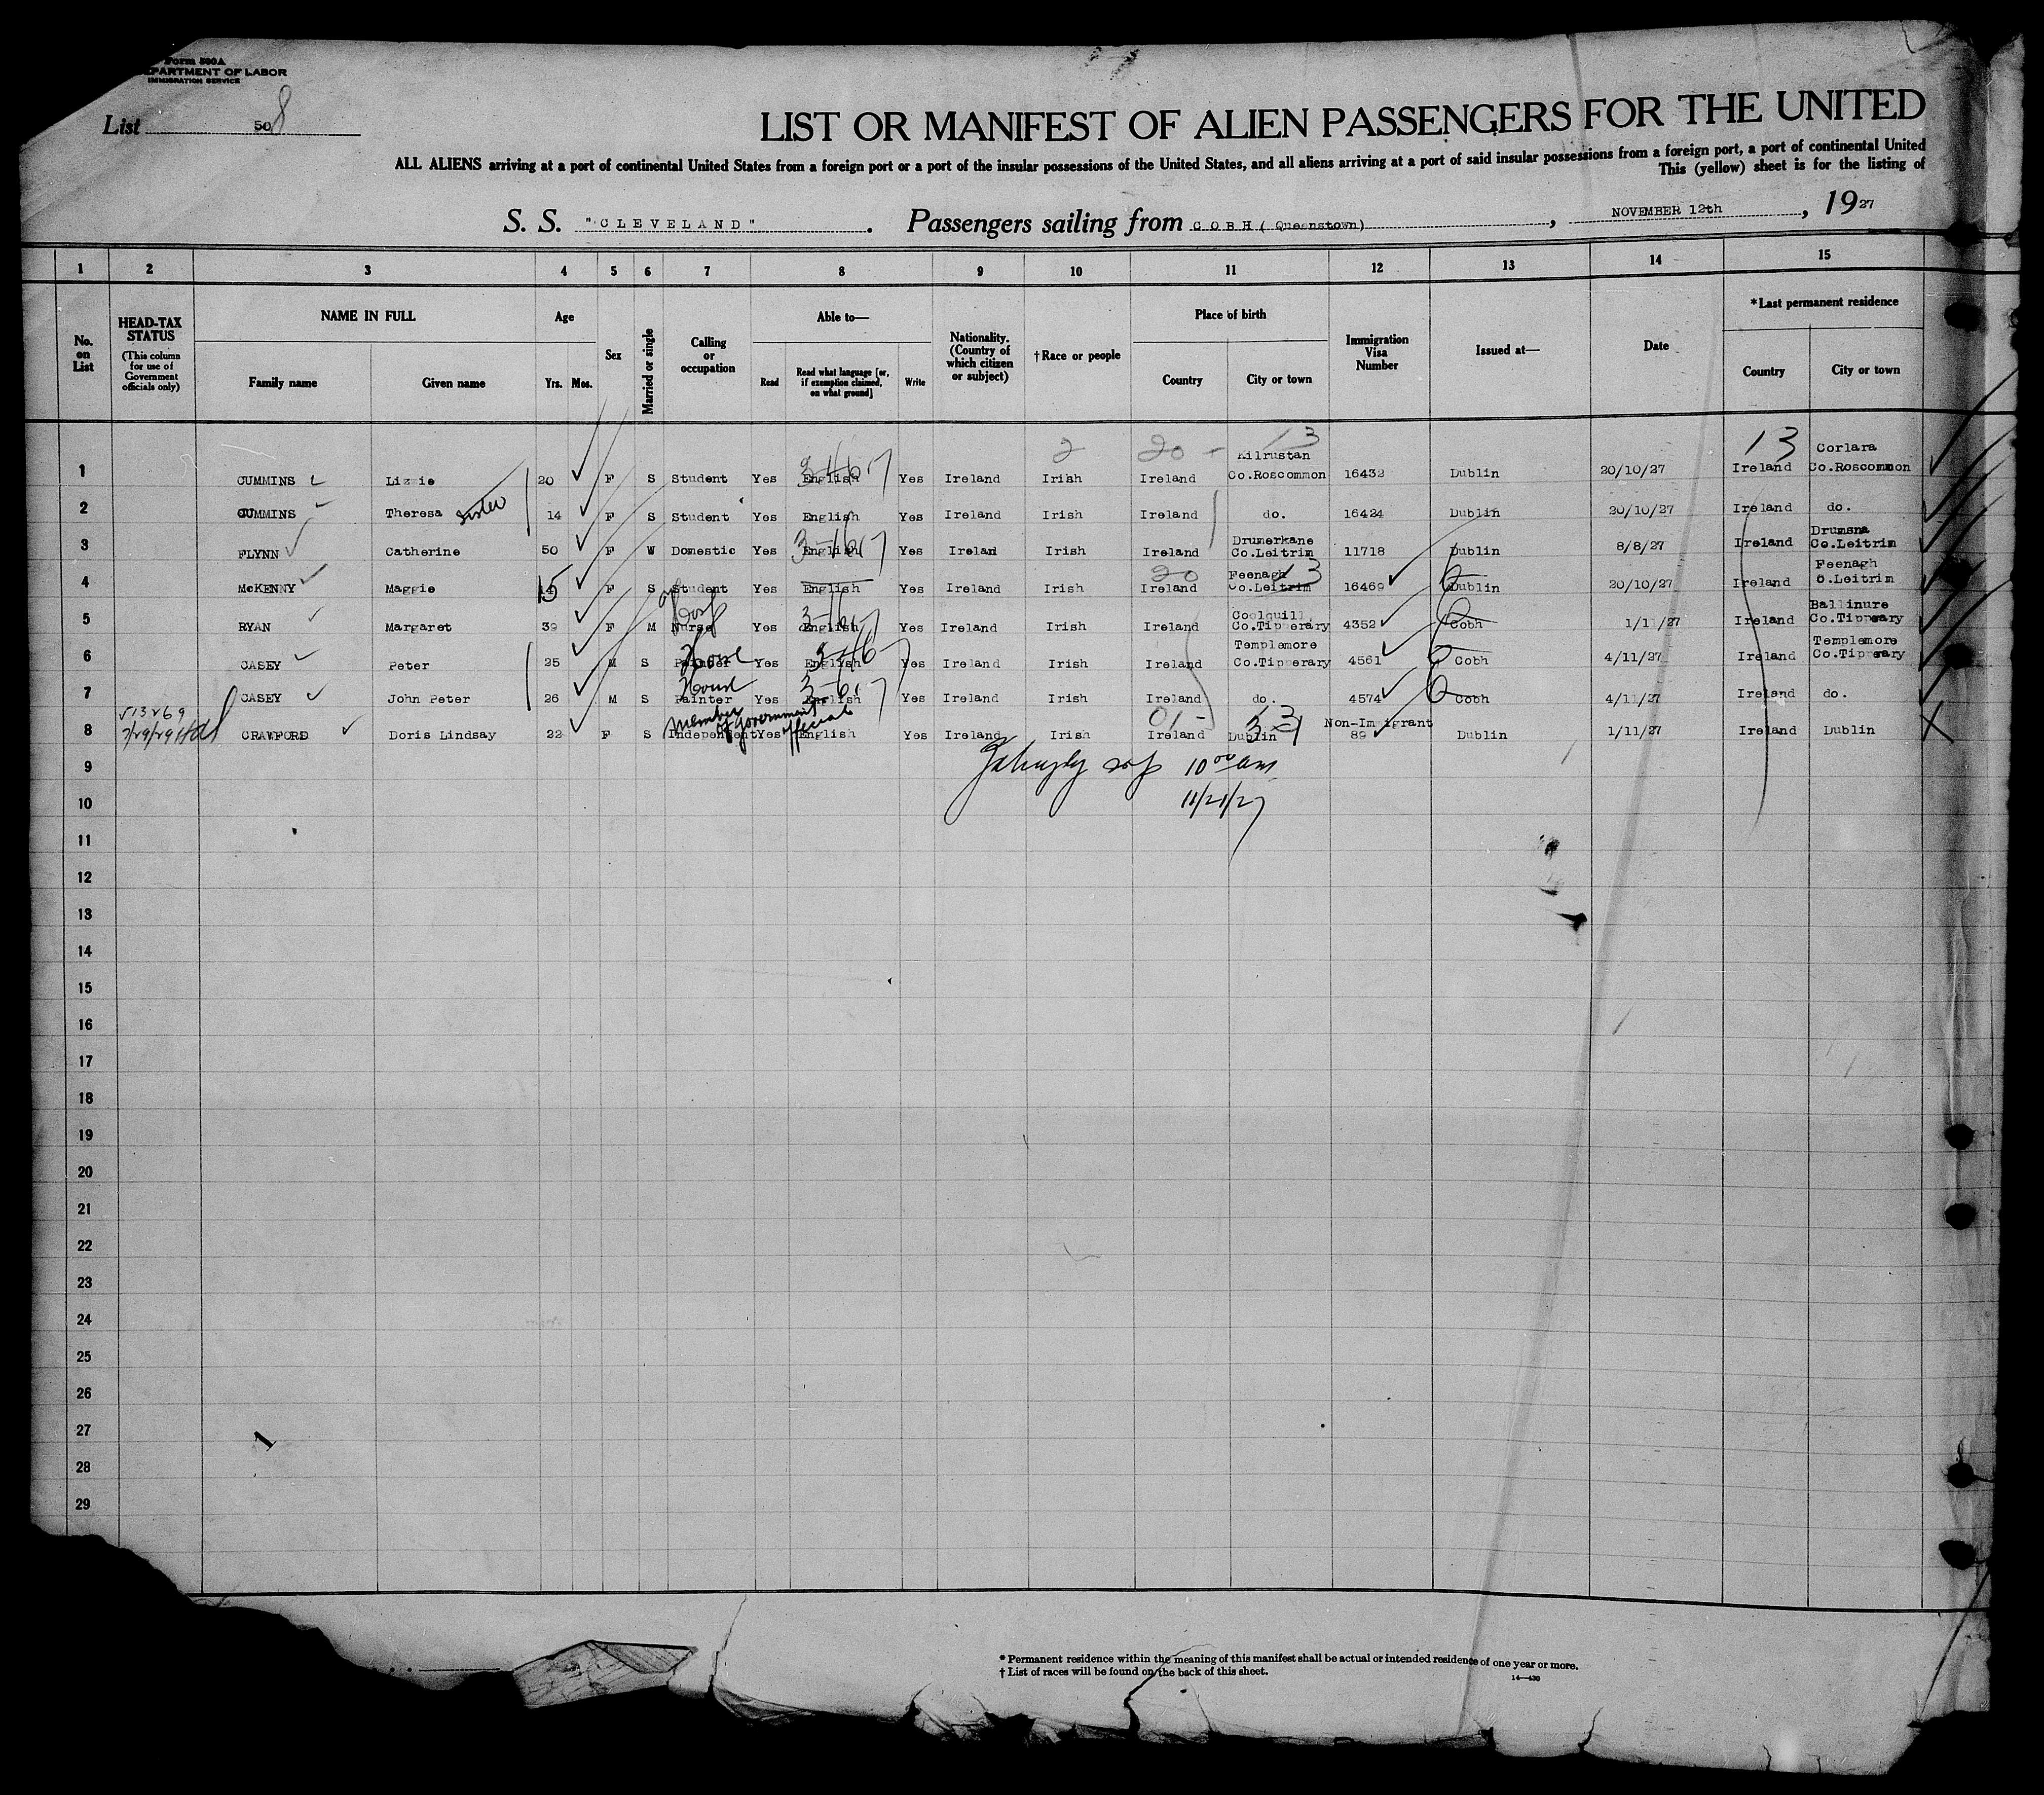 Form 500A
DEPARTMENT OF LABOR
IMMIGRATION SERVICE
List 508
LIST OR MANIFEST OF ALIEN PASSENGERS FOR THE UNITED
ALL ALIENS arriving at a port of continental United States from a foreign port or a port of the insular possessions of the United States, and all aliens arriving at a port of said insular possessions from a foreign port, a port of continental United
This (yellow) sheet is for the listing of
S. S. "CLEVELAND". Passengers sailing from COBH (Queenstown), NOVEMBER 12th, 1927
1 2 3 4 5 6 7 8 9 10 11 12 13 14 15
No. on List
HEAD-TAX STATUS
(This column for use of Government officials only)
NAME IN FULL
Family name Given name
Age
Yrs. Mos.
Sex
Married or single
Calling or occupation
Able to—
Read Read what language [or, if exemption claimed, on what ground] Write
Nationality. (Country of which citizen or subject)
† Race or people
Place of birth
Country City or town
Immigration Visa Number
Issued at—
Date
*Last permanent residence
Country City or town
1 CUMMINS Lizzie 20 F S Student Yes English Yes Ireland Irish Ireland Kilrustan Co.Roscommon 16432 Dublin 20/10/27 Ireland Corlara Co.Roscommon
2 CUMMINS Theresa sister 14 F S Student Yes English Yes Ireland Irish Ireland do. 16424 Dublin 20/10/27 Ireland do.
3 FLYNN Catherine 50 F W Domestic Yes English Yes Irelan Irish Ireland Drumerkane Co.Leitrim 11718 Dublin 8/8/27 Ireland Drumsna Co.Leitrim
4 McKENNY Maggie 15 F S Student Yes English Yes Ireland Irish Ireland Feenagh Co.Leitrim 16469 Dublin 20/10/27 Ireland Feenagh C.Leitrim
5 RYAN Margaret 39 F M Nurse Yes English Yes Ireland Irish Ireland Coolquill Co.Tipperary 4352 Cobh 1/11/27 Ireland Ballinure Co.Tipperary
6 CASEY Peter 25 M S House Painter Yes English Yes Ireland Irish Ireland Templemore Co.Tipperary 4561 Cobh 4/11/27 Ireland Templemore Co.Tipperary
7 CASEY John Peter 26 M S House Painter Yes English Yes Ireland Irish Ireland do. 4574 Cobh 4/11/27 Ireland do.
8 CRAWFORD Doris Lindsay 22 F S Independent member of government official Yes English Yes Ireland Irish Ireland Dublin Non-Immigrant 89 Dublin 1/11/27 Ireland Dublin
9
10:00 am
10
11/21/27
11
12
13
14
15
16
17
18
19
20
21
22
23
24
25
26
27
28
29
* Permanent residence within the meaning of this manifest shall be actual or intended residence of one year or more.
† List of races will be found on the back of this sheet.
14—430